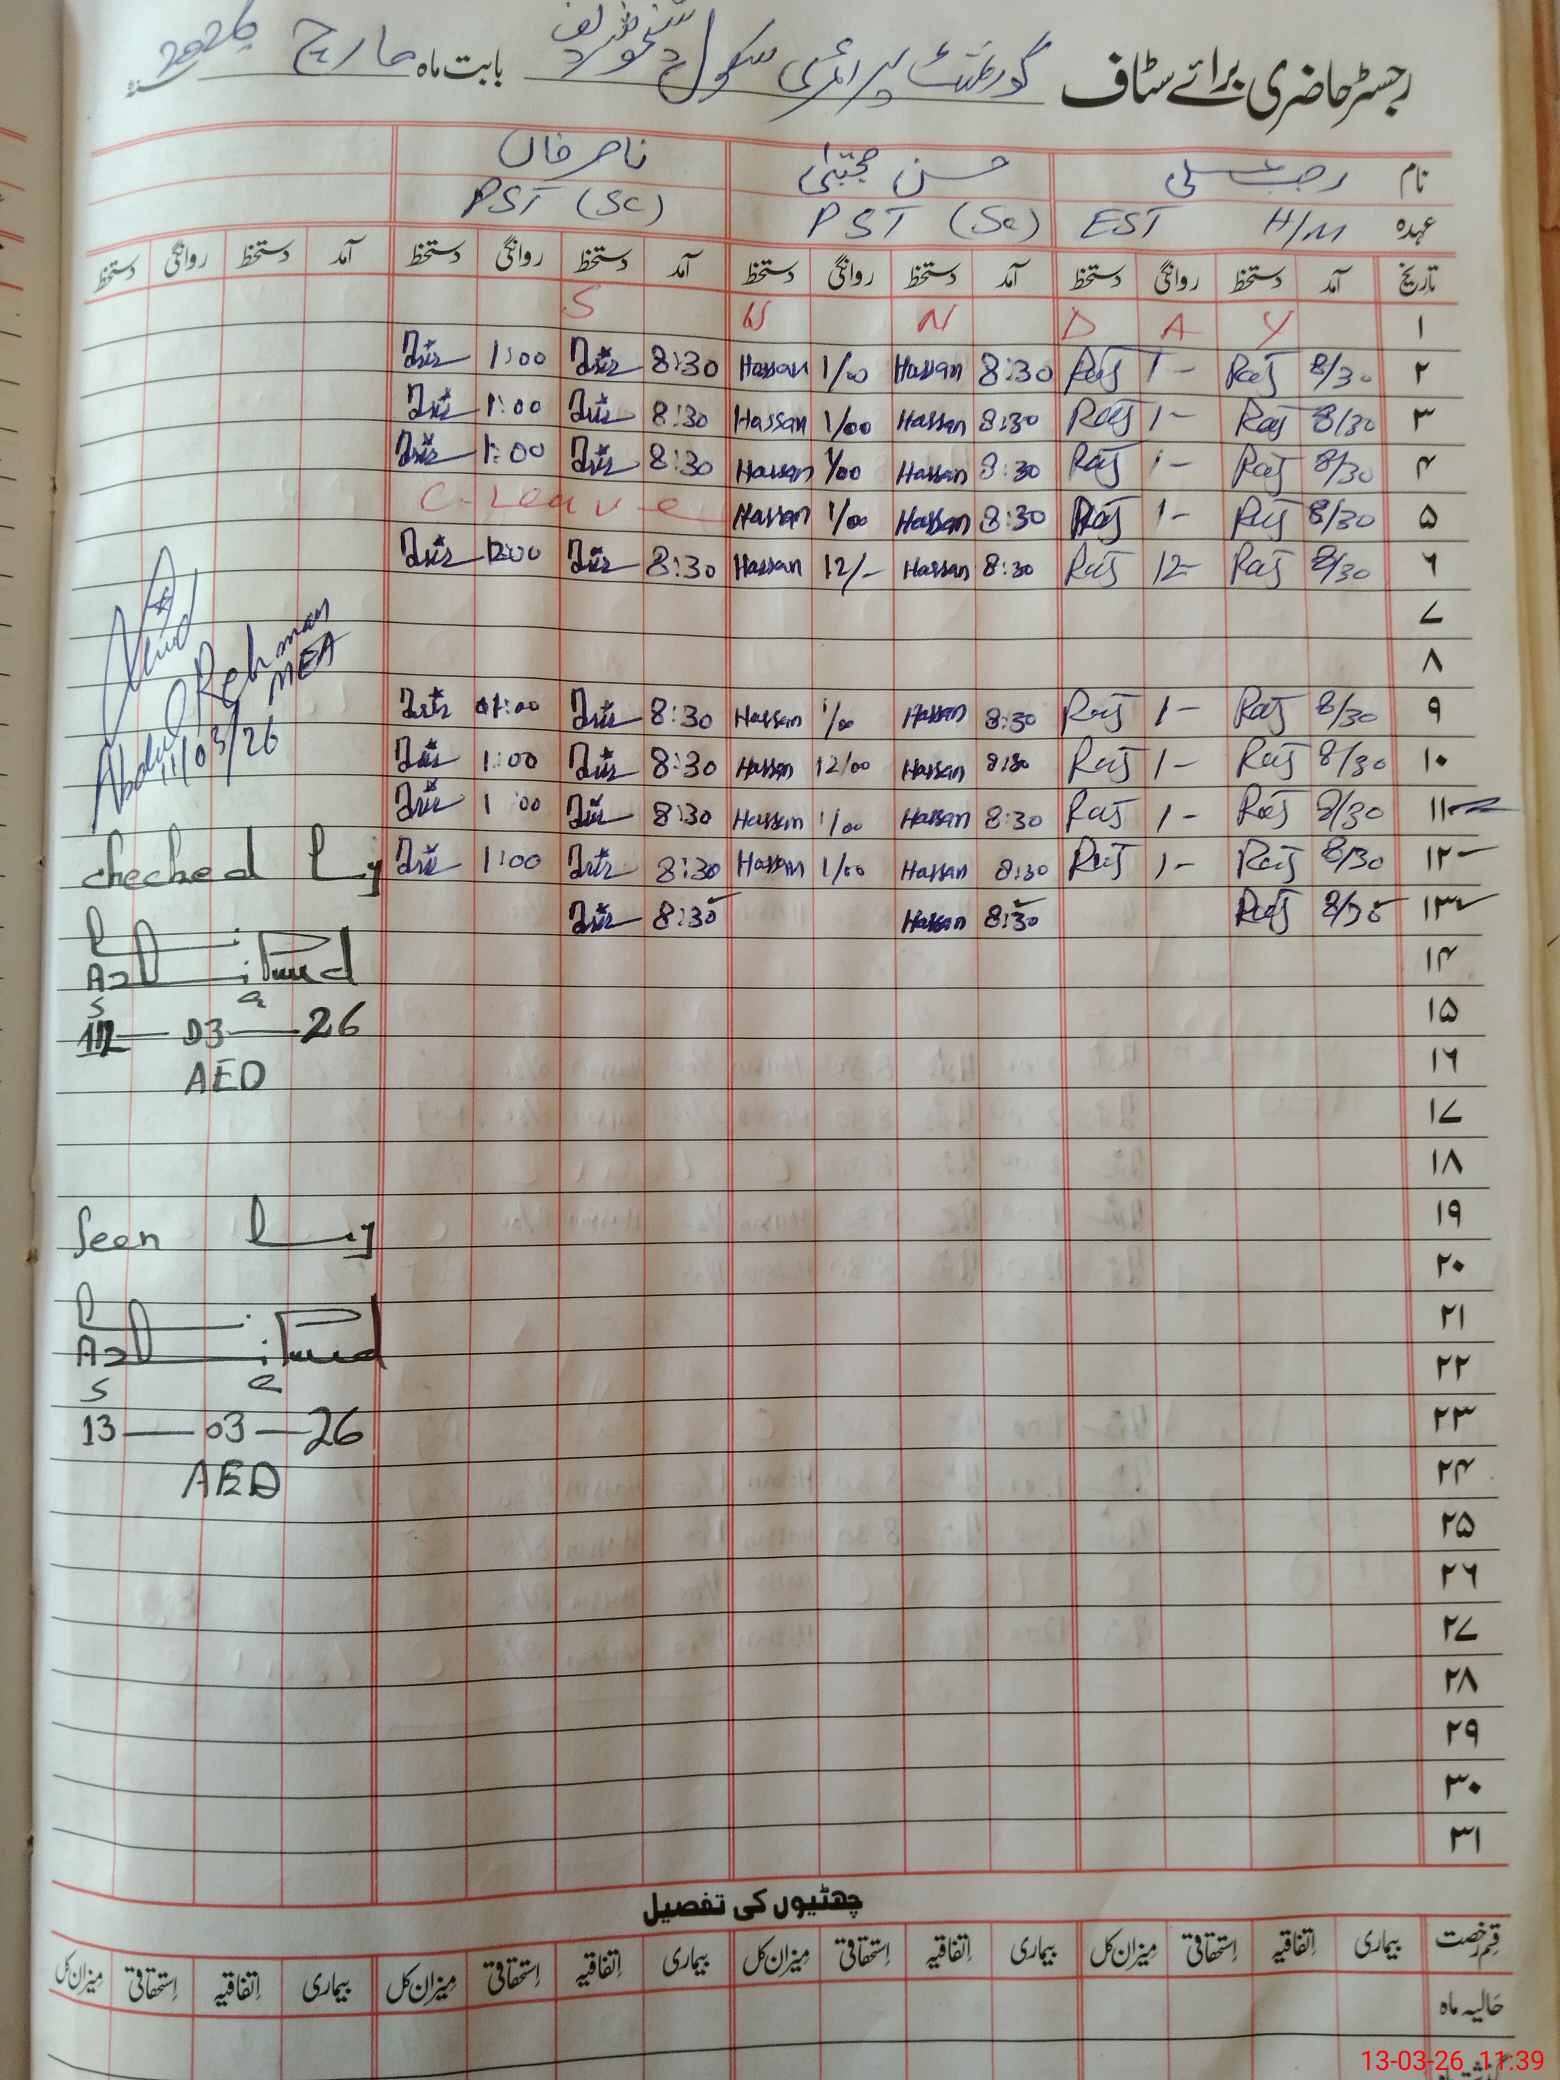 رجسٹر حاضری برائے سٹاف گورنمنٹ پرائمری سکول بابت ماہ مارچ 2026
نام رجب علی حسن مجتبیٰ ناصر خان
عہدہ H/M EST PST (Se) PST (Sc)
تاریخ آمد دستخط روانگی دستخط آمد دستخط روانگی دستخط آمد دستخط روانگی دستخط آمد دستخط روانگی دستخط
۱ S U N D A Y
۲ 8/30 Raj 1- Raj 8:30 Hassan 1/00 Hassan 8:30 1:00
۳ 8/30 Raj 1- Raj 8:30 Hassan 1/00 Hassan 8:30 1:00
۴ 8/30 Raj 1- Raj 8:30 Hassan 1/00 Hassan 8:30 1:00
۵ 8/30 Raj 1- Raj 8:30 Hassan 1/00 Hassan C-Leave
۶ 8/30 Raj 12- Raj 8:30 Hassan 12/- Hassan 8:30 12:00
۷
۸
۹ 8/30 Raj 1- Raj 8:30 Hassan 1/00 Hassan 8:30 01:00
۱۰ 8/30 Raj 1- Raj 8:30 Hassan 12/00 Hassan 8:30 1:00
۱۱ 8/30 Raj 1- Raj 8:30 Hassan 1/00 Hassan 8:30 1:00
۱۲ 8/30 Raj 1- Raj 8:30 Hassan 1/00 Hassan 8:30 1:00
۱۳ 8/30 Raj 8:30 Hassan 8:30
۱۴
۱۵
۱۶
۱۷
۱۸
۱۹
۲۰
۲۱
۲۲
۲۳
۲۴
۲۵
۲۶
۲۷
۲۸
۲۹
۳۰
۳۱
Abdul Rehman
MEA
11/03/26
checked by
12-03-26
AED
Seen by
13-03-26
AED
چھٹیوں کی تفصیل
قسم رخصت بیماری اتفاقیہ استحقاقی میزان کل بیماری اتفاقیہ استحقاقی میزان کل بیماری اتفاقیہ استحقاقی میزان کل بیماری اتفاقیہ استحقاقی میزان کل
حالیہ ماہ
13-03-26 11:39